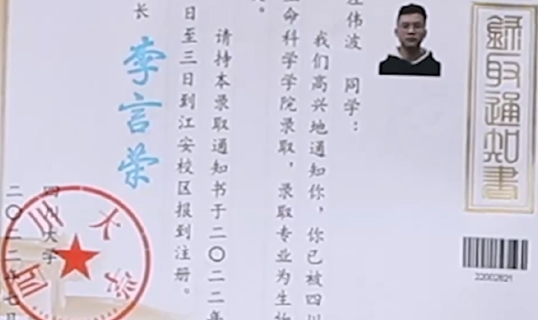 录取通知书
22002621
伟波 同学：
我们高兴地通知你，你已被四川
命科学学院录取，录取专业为生物
请持本录取通知书于二〇二二年
日至三日到江安校区报到注册。
长 李言荣
四川大学
二〇二二年七月
四川大学